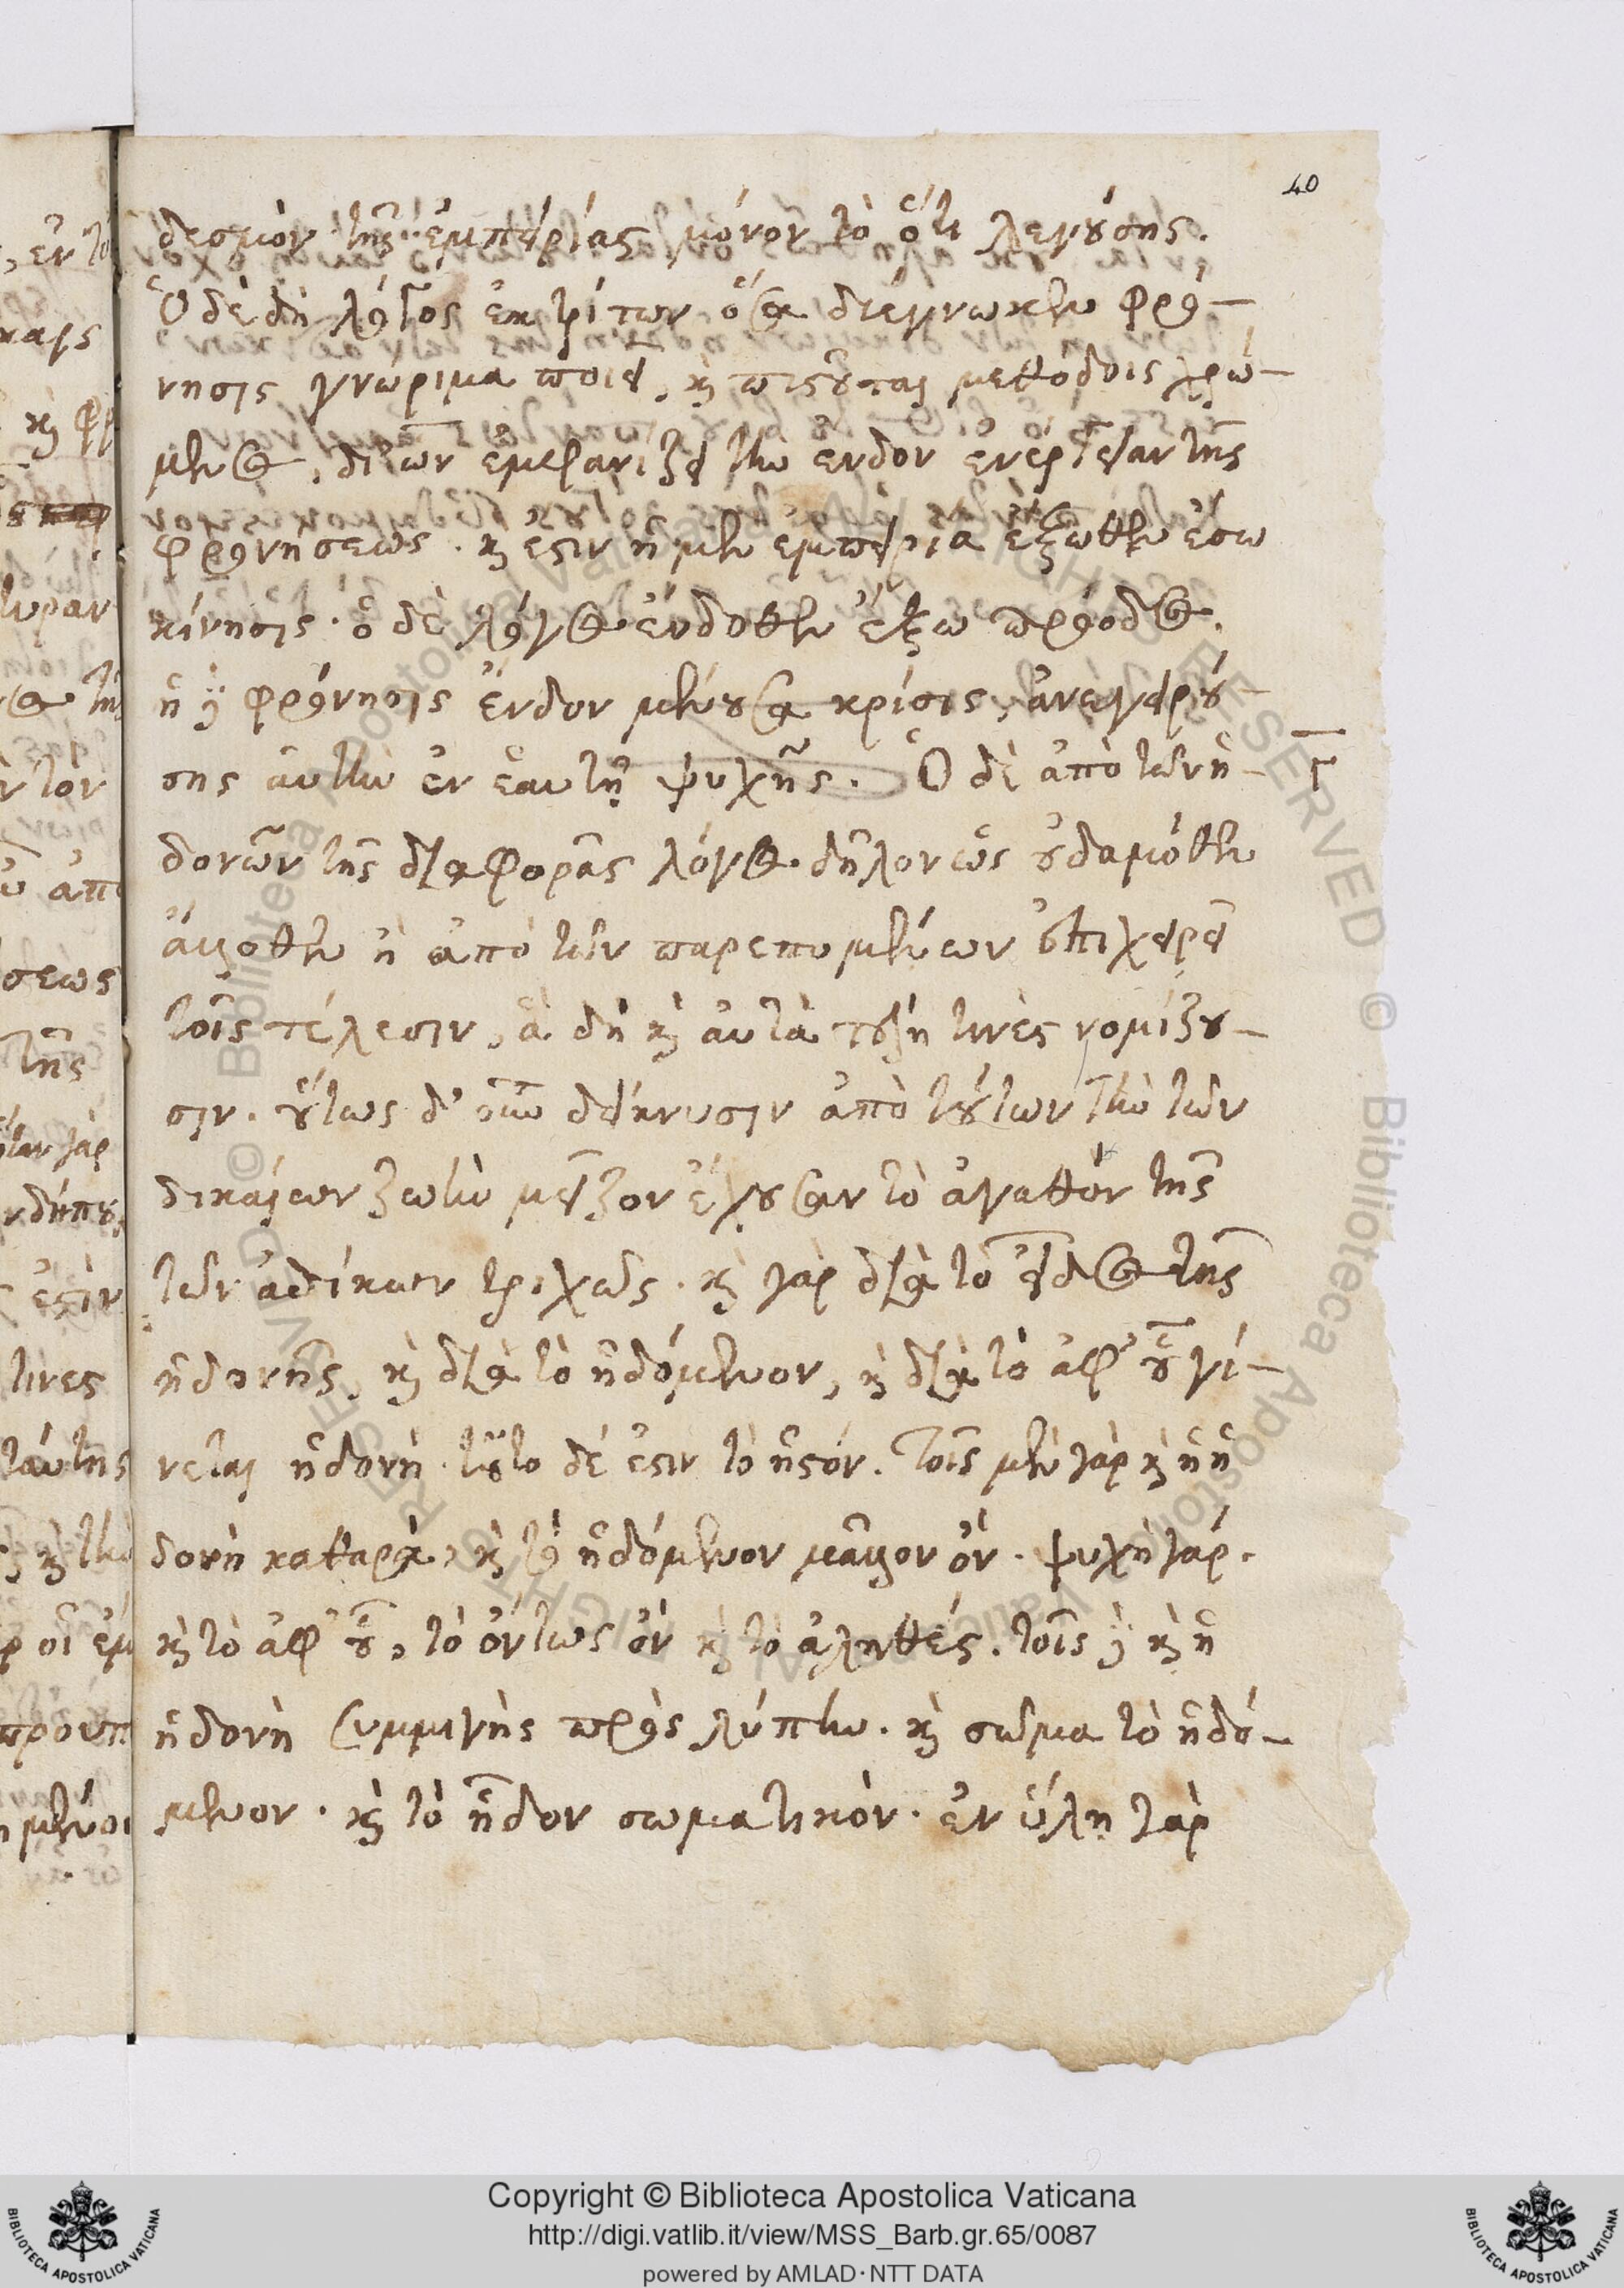 40
δεσμὸν τῆς ἐμπειρίας μόνον τὸ ὅτι λεγούσης.
Ὁ δὲ δὴ λόγος ἐκ τρίτων ὅσα διέγνωκεν φρό-
νησις γνώριμα ποιεῖ, καὶ πιστοῦται μεθόδοις χρώ-
μενος, δι' ὧν ἐμφανίζει τὴν ἔνδον ἐνέργειαν τῆς
φρονήσεως. καὶ ἔστιν ἡ μὲν ἐμπειρία ἔξωθεν ἔσω
κίνησις· ὁ δὲ λόγος ἔνδοθεν ἔξω πρόοδος.
ἡ δὲ φρόνησις ἔνδον μένουσα κρίσις, ἀνεγειρού-
σης αὐτὴν ἐν ἑαυτῇ ψυχῆς. Ὁ δὲ ἀπὸ τῶν ἡ-
Γ
δονῶν τῆς διαφορᾶς λόγος. δῆλον ὡς οὐδαμόθεν
ἄλλοθεν ἢ ἀπὸ τῶν παρεπομένων ἐπιχειρεῖ
τοῖς τέλεσιν, ἃ δὴ καὶ αὐτὰ τέλη τινὲς νομίζου-
σιν. οὕτως δ' οὖν δείκνυσιν ἀπὸ τούτων τὴν τῶν
δικαίων ζωὴν μεῖζον ἔχουσαν τὸ ἀγαθὸν τῆς
τῶν ἀδίκων τριχῶς. καὶ γὰρ διὰ τὸ εἶδος τῆς
ἡδονῆς, καὶ διὰ τὸ ἡδόμενον, καὶ διὰ τὸ ἀφ' οὗ γί-
νεται ἡδονὴ. τοῦτο δέ ἐστιν τὸ ἡστόν. τοῖς μὲν γὰρ καὶ ἡ ἡ
δονὴ καθαρὰ, καὶ τὸ ἡδόμενον μᾶλλον ὄν. ψυχὴ γάρ.
καὶ τὸ ἀφ' οὗ, τὸ ὄντως ὂν καὶ τὸ ἀληθές. τοῖς δὲ καὶ ἡ
ἡδονὴ συμμιγὴς πρὸς λύπην. καὶ σῶμα τὸ ἡδό-
μενον. καὶ τὸ ἧδον σωματικὸν. ἐν ὕλῃ γὰρ
Copyright © Biblioteca Apostolica Vaticana
http://digi.vatlib.it/view/MSS_Barb.gr.65/0087
powered by AMLAD·NTT DATA